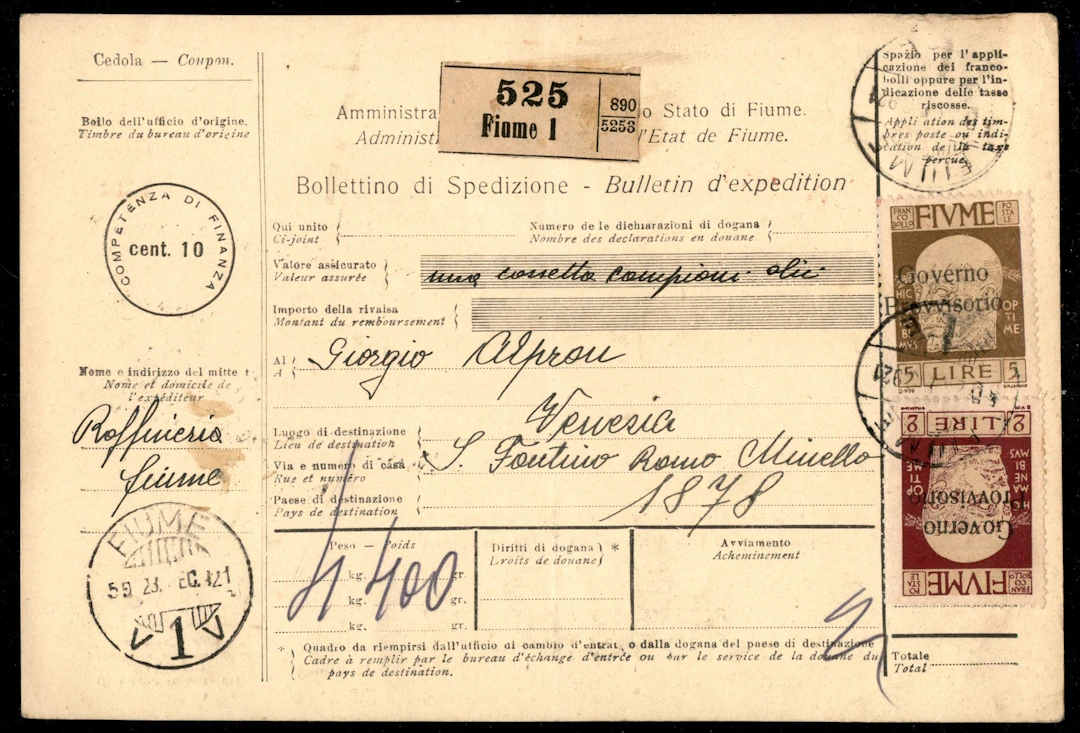 Cedola — Coupon.
Bollo dell'ufficio d'origine.
Timbre du bureau d'origine
COMPETENZA DI FINANZA
cent. 10
Nome e indirizzo del mitte t
Nome et domicile de
l'expéditeur
Raffineria
fiume
FIUME
23. EC. 921
1
525
Fiume 1
890
5253
Amministra
o Stato di Fiume.
Administ
l'Etat de Fiume.
Bollettino di Spedizione - Bulletin d'expedition
Qui unito
Ci-joint
Numero de le dichiarazioni di dogana
Nombre des declarations en douane
Valore assicurato
Valeur assurée
una cassetta campioni olii
Importo della rivalsa
Montant du remboursement
Al
A
Giorgio Alprou
Luogo di destinazione
Lieu de destination
Venezia
Via e numero di casa
Rue et numéro
S. Fantino Ramo Minello
1878
Paese di destinazione
Pays de destination
Peso — Poids
kg. gr.
kg. gr.
kg. gr.
4 400
Diritti di dogana *
Droits de douane
Avviamento
Acheminement
2
* Quadro da riempirsi dall'ufficio di cambio d'entrat. o dalla dogana del paese di destinazione
Cadre à remplir par le bureau d'échange d'entrée ou par le service de la douane du
pays de destination.
Spazio per l'appli-
cazione dei franco-
bolli oppure per l'in-
dicazione delle tasse
riscosse.
Appli ation des tim-
bres poste ou indi-
cation de la taxe
perçue
FIUM
FRAN
CO
BOLLO
FIVME
PO
STA
LE
Governo
Provvisorio
HIC
OP
TIME
5 LIRE 5
2 LIRE 2
HIC
MANE
BIMVS
OP
TIME
Provvisorio
Governo
FRAN
CO
BOLLO
FIVME
PO
STA
LE
Totale
Total